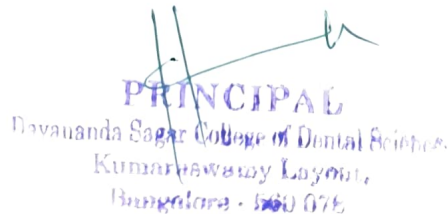 PRINCIPAL
Dayananda Sagar College of Dental Sciences,
Kumaraswamy Layout,
Bangalore - 560 078